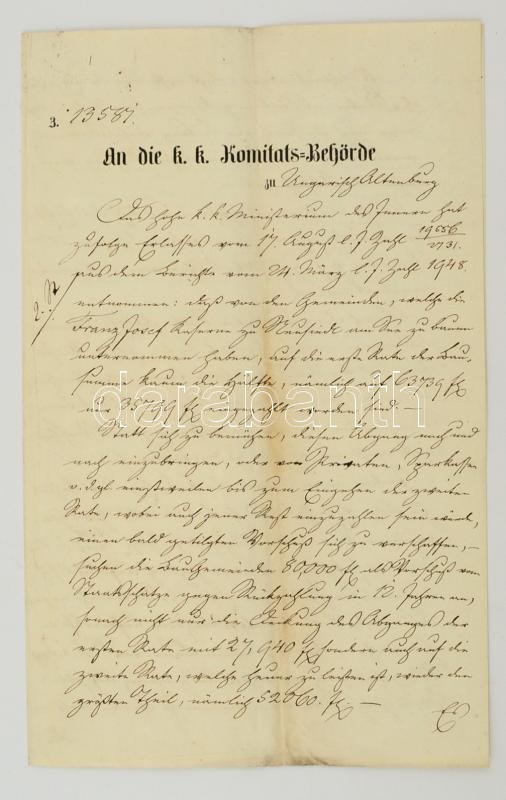 3. 13581.
An die k. k. Komitats=Behörde
zu Ungarisch Altenburg
Das hohe k. k. Ministerium des Innern hat
zufolge Erlasses vom 17. August l. J. Zahl 19686/2731.
aus dem Berichte vom 24. März l. J. Zahl 1948.
entnommen: daß von den Gemeinden, welche die
Franz Josef Kaserne zu Neusiedl am See zu bauen
unternommen haben, auf die erste Rate der Bau,
summe kaum die Hälfte, nämlich auf 63739 fl
nur 35799 fl eingezahlt worden sind. —
Statt sich zu bemühen, diesen Abgang nach und
nach einzubringen, oder von Privaten, Sparkassen
u. dgl. einstweilen bis zum Eingehen der zweiten
Rate, wobei auch jener Rest einzuzahlen sein würde,
einen bald getilgten Vorschuß sich zu verschaffen, —
suchen die Baugemeinden 80,000 fl als Vorschuß vom
Staatsschatze gegen Rückzahlung in 12. Jahren an,
sonach nicht nur die Deckung des Abganges der
ersten Rate mit 27,940 fl sondern auch auf die
zweite Rate, welche heuer zu leisten ist, wieder den
größten Theil, nämlich 52060. fl. —
Es
darabanth